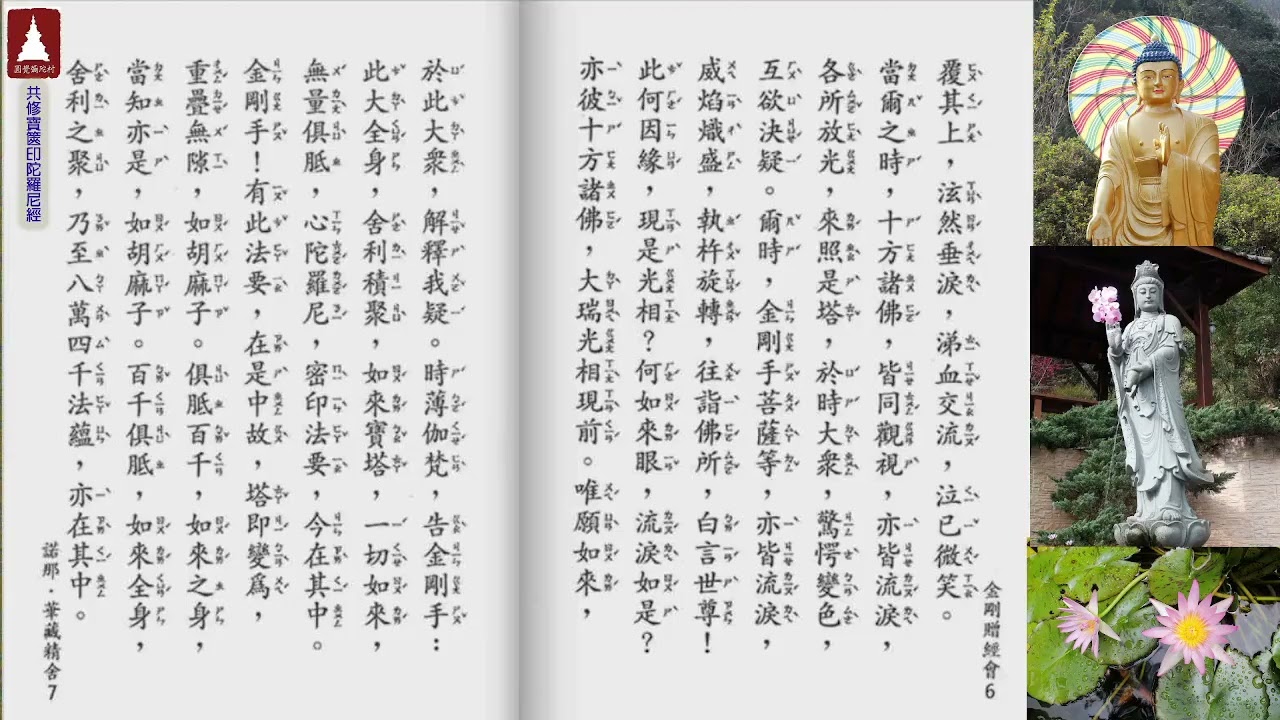 圓覺彌陀村
共修寶篋印陀羅尼經
覆其上，泫然垂淚，涕血交流，泣已微笑。
當爾之時，十方諸佛，皆同觀視，亦皆流淚，
各所放光，來照是塔，於時大衆，驚愕變色，
互欲決疑。爾時，金剛手菩薩等，亦皆流淚，
威焰熾盛，執杵旋轉，往詣佛所，白言世尊！
此何因緣，現是光相？何如來眼，流淚如是？
亦彼十方諸佛，大瑞光相現前。唯願如來，
金剛贈經會 6
於此大衆，解釋我疑。時薄伽梵，告金剛手：
此大全身，舍利積聚，如來寶塔，一切如來，
無量俱胝，心陀羅尼，密印法要，今在其中。
金剛手！有此法要，在是中故，塔即變爲，
重疊無隙，如胡麻子。俱胝百千，如來之身，
當知亦是，如胡麻子。百千俱胝，如來全身，
舍利之聚，乃至八萬四千法蘊，亦在其中。
諾那·華藏精舍 7